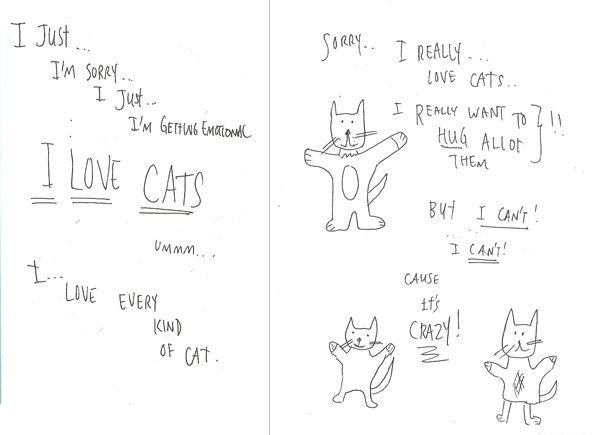 I JUST...
I'M SORRY...
I JUST...
I'M GETTING EMOTIONAL
I LOVE CATS
UMMM...
I...
LOVE EVERY
KIND
OF CAT.
SORRY..
I REALLY...
LOVE CATS..
I REALLY WANT TO
HUG ALL OF
THEM
!!
BUT I CAN'T!
I CAN'T!
CAUSE
IT'S
CRAZY!